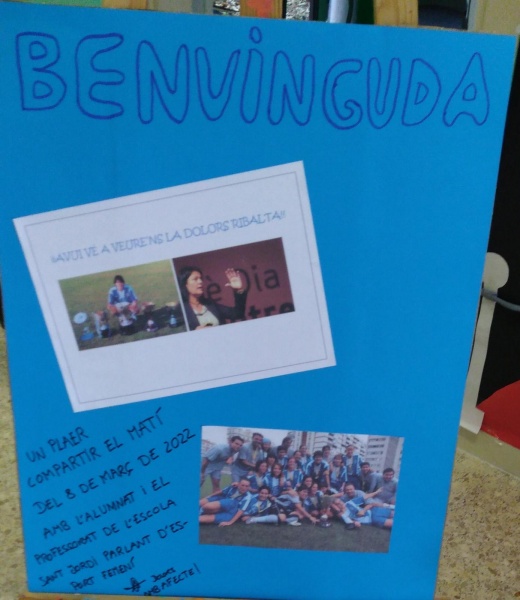 BENVINGUDA
¡¡AVUI VE A VEURE'NS LA DOLORS RIBALTA!!
è Dia
UN PLAER
COMPARTIR EL MATÍ
DEL 8 DE MARÇ DE 2022
AMB L'ALUMNAT I EL
PROFESSORAT DE L'ESCOLA
SANT JORDI PARLANT D'ES-
PORT FEMENÍ
DOLORS
AMB AFECTE!